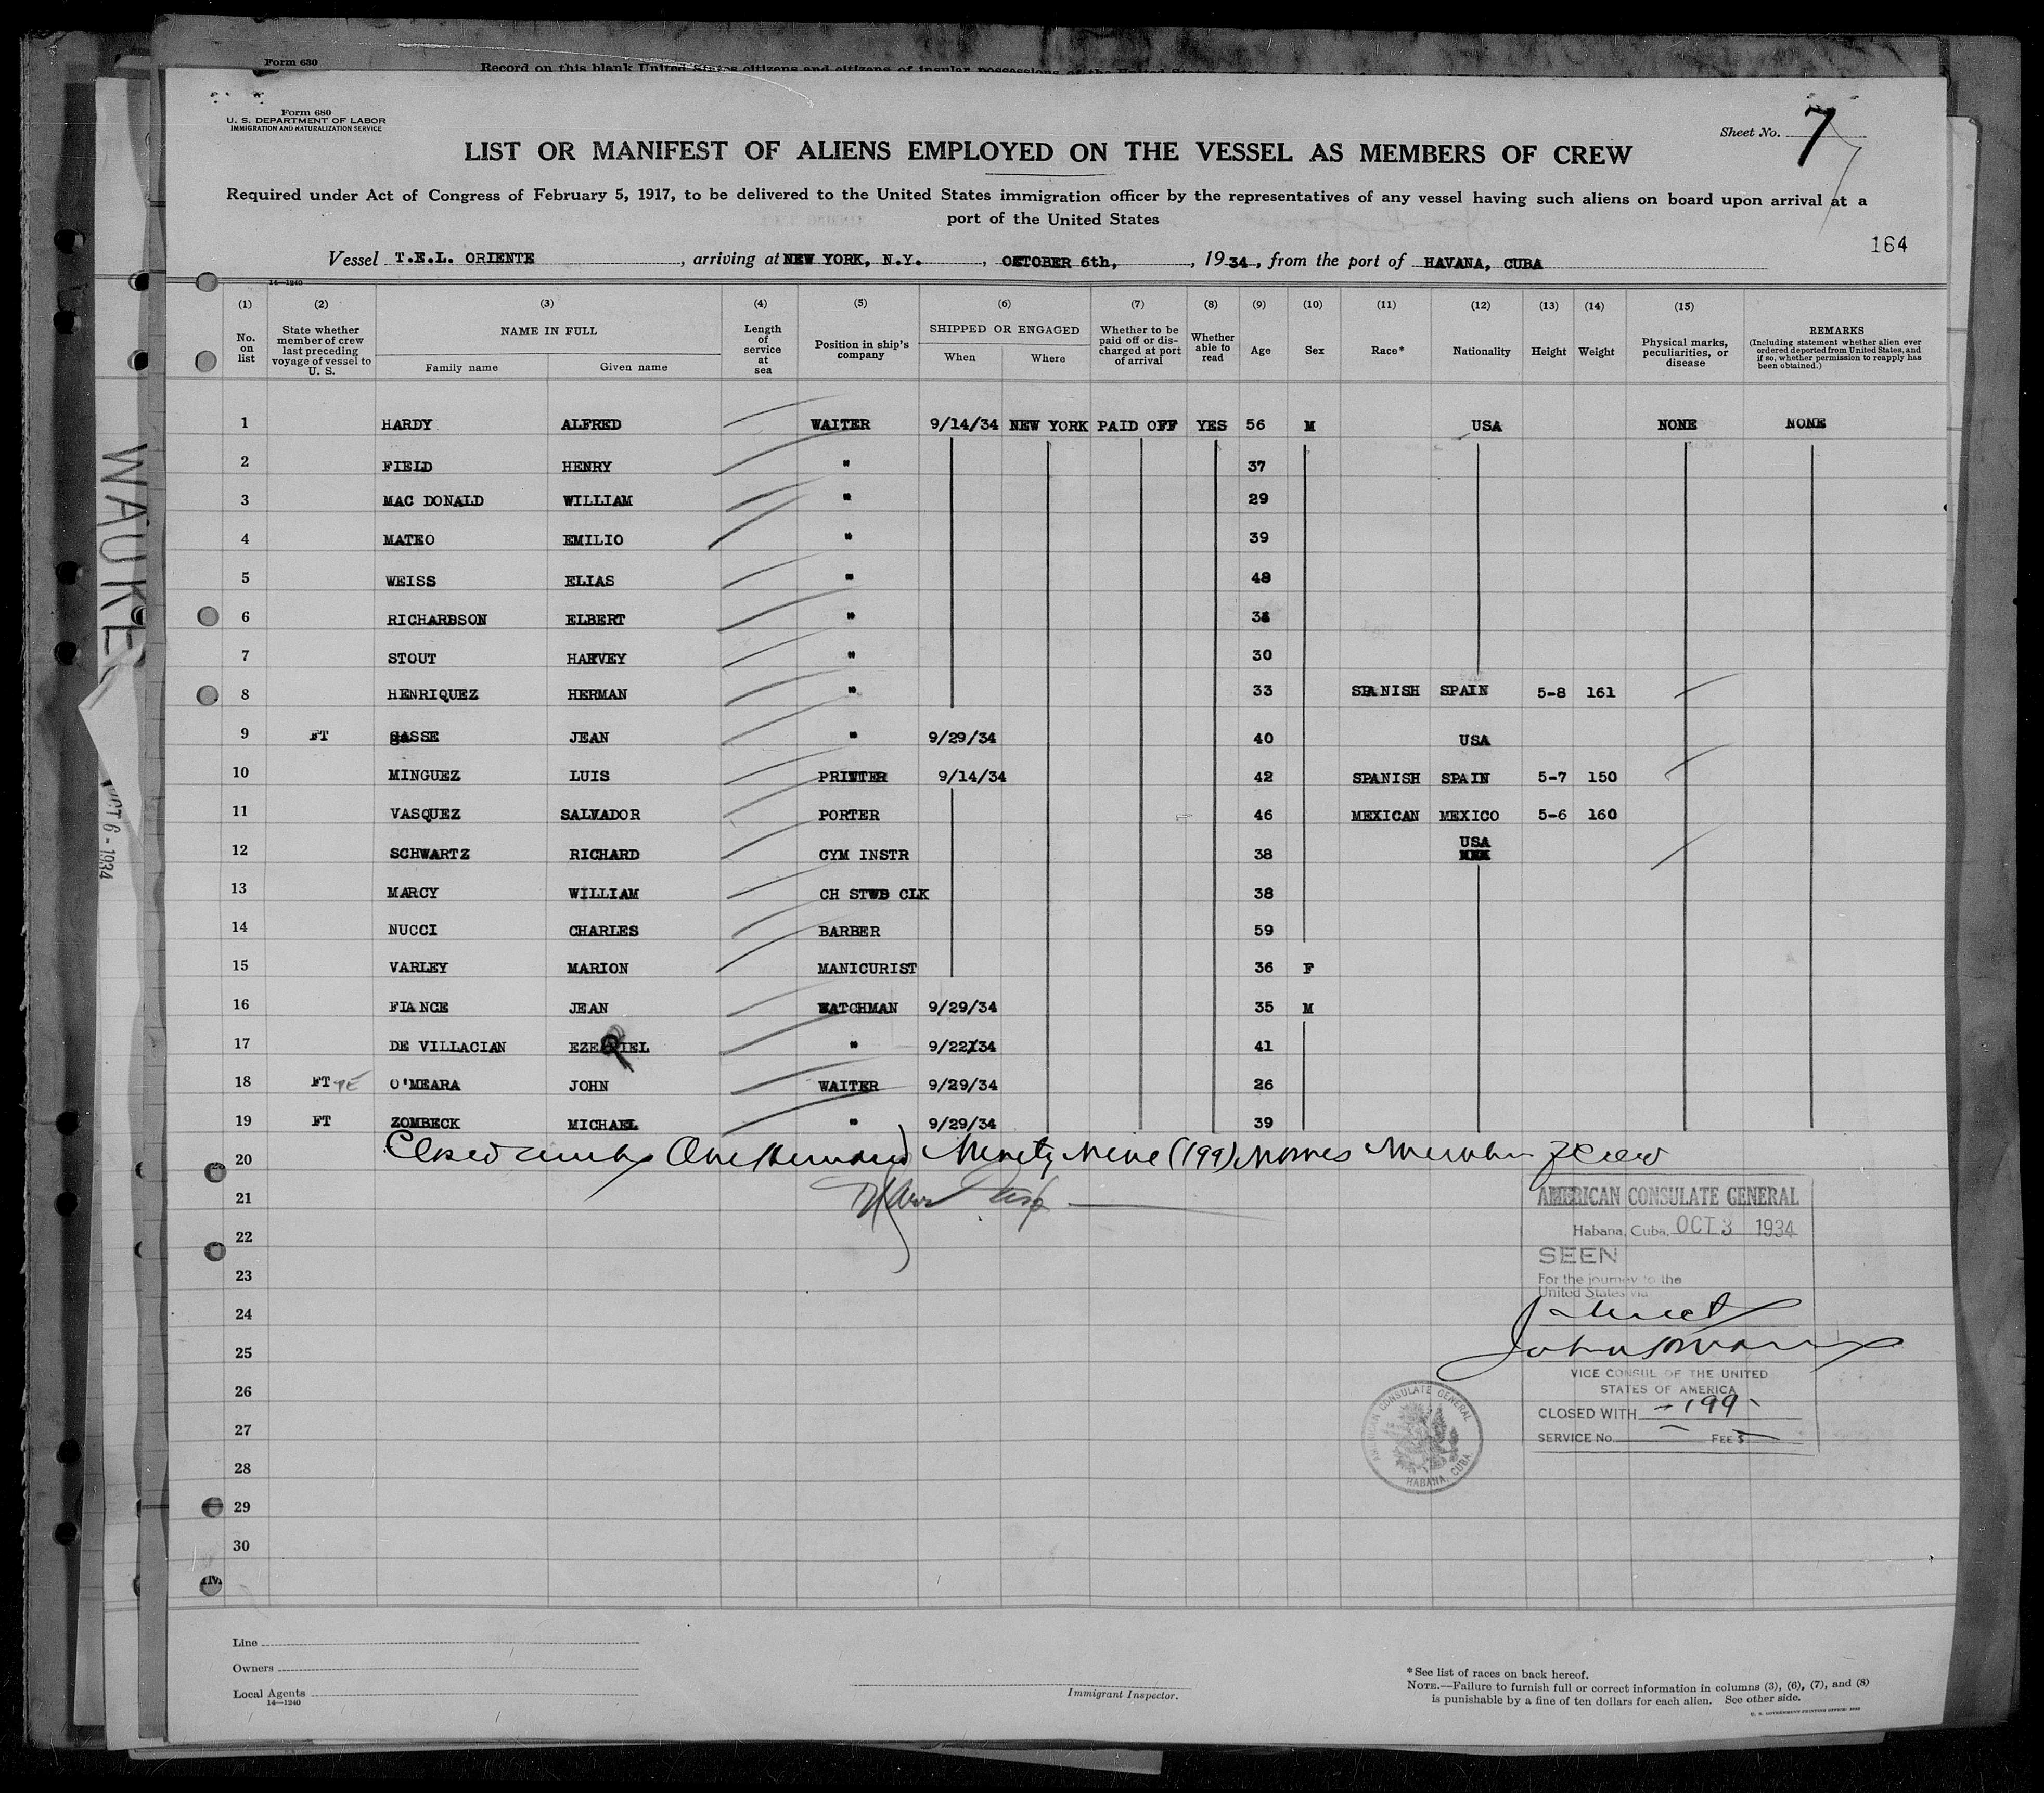 Form 630
Record on this blank United States citizens and citizens of insular possessions of the United States
Form 680
U. S. DEPARTMENT OF LABOR
IMMIGRATION AND NATURALIZATION SERVICE
Sheet No. 7
LIST OR MANIFEST OF ALIENS EMPLOYED ON THE VESSEL AS MEMBERS OF CREW
Required under Act of Congress of February 5, 1917, to be delivered to the United States immigration officer by the representatives of any vessel having such aliens on board upon arrival at a
port of the United States
164
Vessel T.E.L. ORIENTE, arriving at NEW YORK, N.Y., OCTOBER 6th, 1934, from the port of HAVANA, CUBA
14—1240
(1) (2) (3) (4) (5) (6) (7) (8) (9) (10) (11) (12) (13) (14) (15)
No. on list
State whether member of crew last preceding voyage of vessel to U. S.
NAME IN FULL
Family name
Given name
Length of service at sea
Position in ship's company
SHIPPED OR ENGAGED
When
Where
Whether to be paid off or discharged at port of arrival
Whether able to read
Age
Sex
Race*
Nationality
Height
Weight
Physical marks, peculiarities, or disease
REMARKS
(Including statement whether alien ever ordered deported from United States, and if so, whether permission to reapply has been obtained.)
1 HARDY ALFRED WAITER 9/14/34 NEW YORK PAID OFF YES 56 M USA NONE NONE
2 FIELD HENRY " 37
3 MAC DONALD WILLIAM " 29
4 MATEO EMILIO " 39
5 WEISS ELIAS " 48
6 RICHARDSON ELBERT "
7 STOUT HARVEY " 30
8 HENRIQUEZ HERMAN " 33 SPANISH SPAIN 5-8 161
9 FT GASSE JEAN " 9/29/34 40 USA
10 MINGUEZ LUIS PRINTER 9/14/34 42 SPANISH SPAIN 5-7 150
11 VASQUEZ SALVADOR PORTER 46 MEXICAN MEXICO 5-6 160
12 SCHWARTZ RICHARD GYM INSTR 38 USA
13 MARCY WILLIAM CH STWD CLK 38
14 NUCCI CHARLES BARBER 59
15 VARLEY MARION MANICURIST 36 F
16 FIANCE JEAN WATCHMAN 9/29/34 35 M
17 DE VILLACIAN EZEQIEL " 9/22/34 41
18 FT O'MEARA JOHN WAITER 9/29/34 26
19 FT ZOMBECK MICHAEL " 9/29/34 39
20 Closed One Hundred Ninety Nine (199) Names Member
21
22
23
24
25
26
27
28
29
30
AMERICAN CONSULATE GENERAL
Habana, Cuba, OCT 3 1934
SEEN
For the journey to the
United States via
VICE CONSUL OF THE UNITED
STATES OF AMERICA
CLOSED WITH 199
SERVICE No. FEE $
AMERICAN CONSULATE GENERAL
HABANA, CUBA
Line
Owners
Local Agents
14—1240
Immigrant Inspector.
*See list of races on back hereof.
NOTE.—Failure to furnish full or correct information in columns (3), (6), (7), and (8)
is punishable by a fine of ten dollars for each alien. See other side.
OCT 6 - 1934